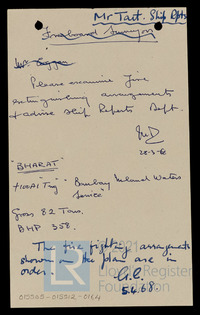 Mr Tait. Ship Rpts
Freeboard Surveyor
Please examine fire
extinguishing arrangements
& advise Ship Reports Dept.
28-3-68
"BHARAT"
"Bombay Inland Waters
Service"
Gross 82 Tons.
BHP 358.
The fire fighting arrangements
shown on the plan are in
order.
5.4.68.
2021
Lloyd's Register
Foundation